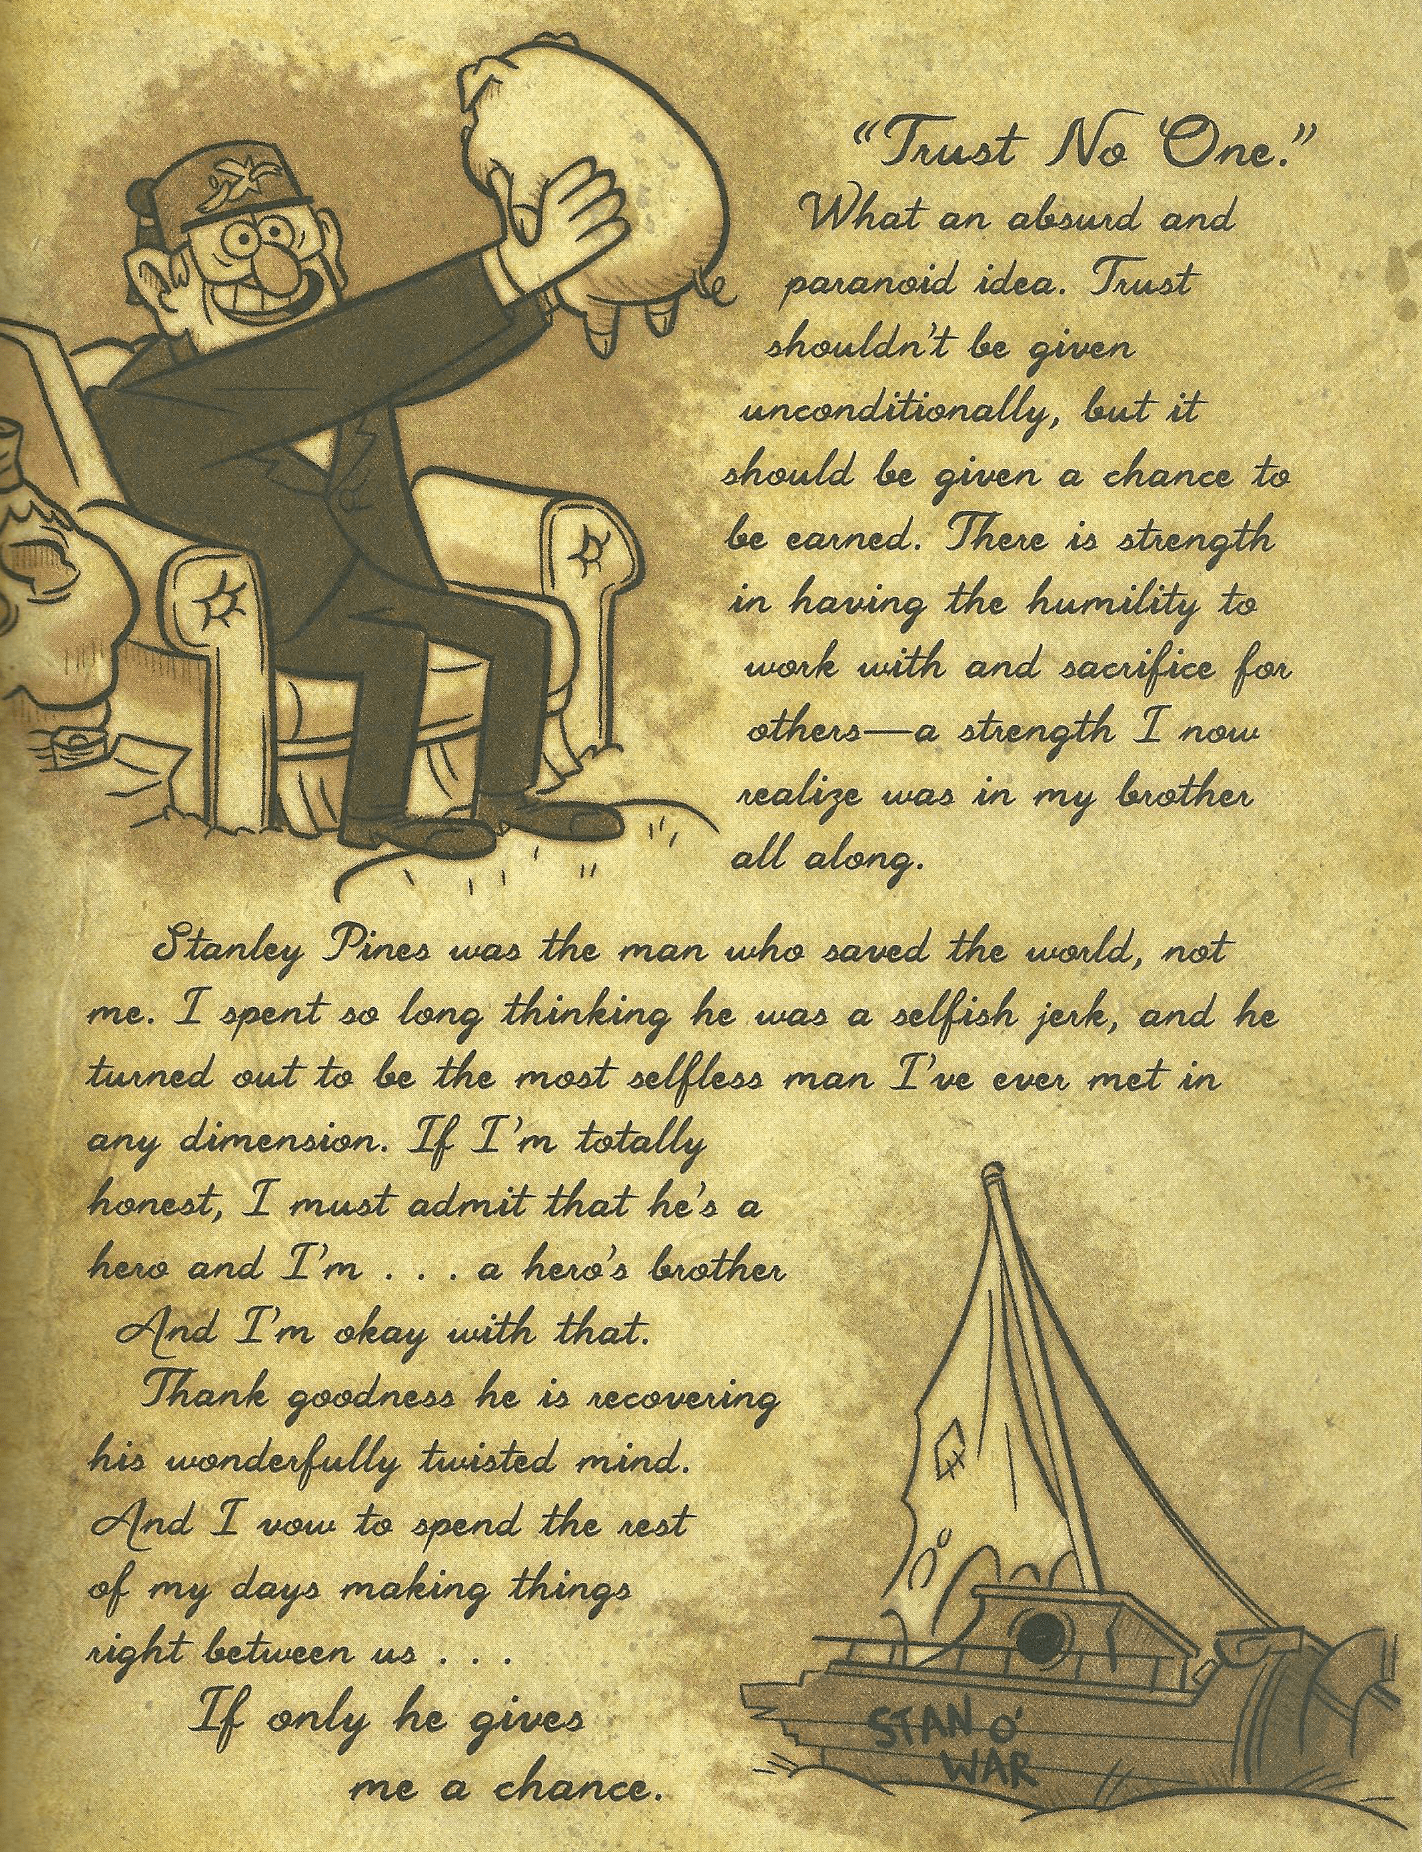 “Trust No One.”
What an absurd and
paranoid idea. Trust
shouldn’t be given
unconditionally, but it
should be given a chance to
be earned. There is strength
in having the humility to
work with and sacrifice for
others—a strength I now
realize was in my brother
all along.
Stanley Pines was the man who saved the world, not
me. I spent so long thinking he was a selfish jerk, and he
turned out to be the most selfless man I’ve ever met in
any dimension. If I’m totally
honest, I must admit that he’s a
hero and I’m . . . a hero’s brother
And I’m okay with that.
Thank goodness he is recovering
his wonderfully twisted mind.
And I vow to spend the rest
of my days making things
right between us . . .
If only he gives
me a chance.
STAN O’
WAR